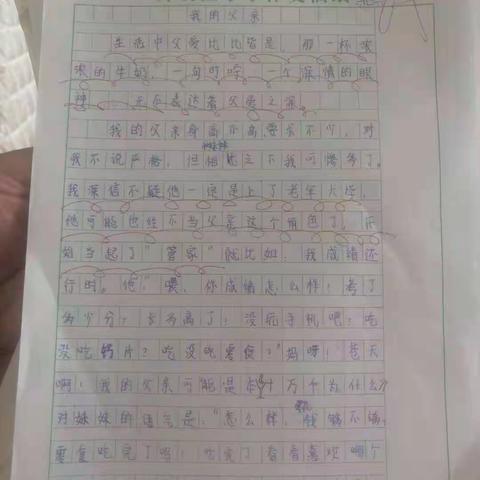 我的父亲
生活中父爱比比皆是，那一杯浓
浓的牛奶，一句叮咛，一个深情的眼
，无不表达着父爱之深。
我的父亲身高不高，要求不少，对
我不说严格，但相比之下我可惨多了。
我深信不疑他一定是上了老年大学，
他可能也经不当父亲这个角色了，开
始当起了“管家”就比如：我成绩还
行时。他“喂，你成绩怎么样！考了
多少分？长多高了！没玩手机吧？吃
没吃钙片？吃没吃零食？”妈呀！苍天
啊！我的父亲可能是本十万个为什么》
对妹妹的语气是：“怎么样，钱够不够，
零食吃完了吗！吃完了看看喜欢哪个